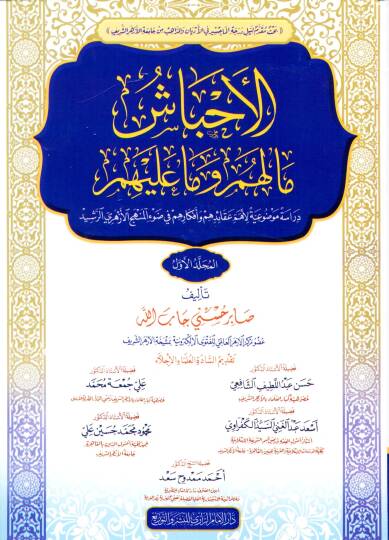 ﴿ بحث مقدم لنيل درجة الماجستير في الأديان والمذاهب من جامعة الأزهر الشريف ﴾
الأحباش
مالهم وما عليهم
دراسة موضوعية لأهم عقائدهم وأفكارهم في ضوء المنهج الأزهري الرشيد
المجلد الأول
تأليف
صابر حسني جاب الله
عضو مركز الأزهر العالمي للفتوى الإلكترونية بمشيخة الأزهر الشريف
تقديم السادة العلماء الأجلاء
فضيلة الأستاذ الدكتور
علي جمعة محمد
فضيلة الأستاذ الدكتور
حسن عبد اللطيف الشافعي
فضيلة الأستاذ الدكتور
محمود محمد حسين علي
فضيلة الأستاذ الدكتور
أسعد عبد الغني السيد الكفراوي
فضيلة الشيخ الدكتور
أحمد ممدوح سعد
دار الإمام الرازي للنشر والتوزيع